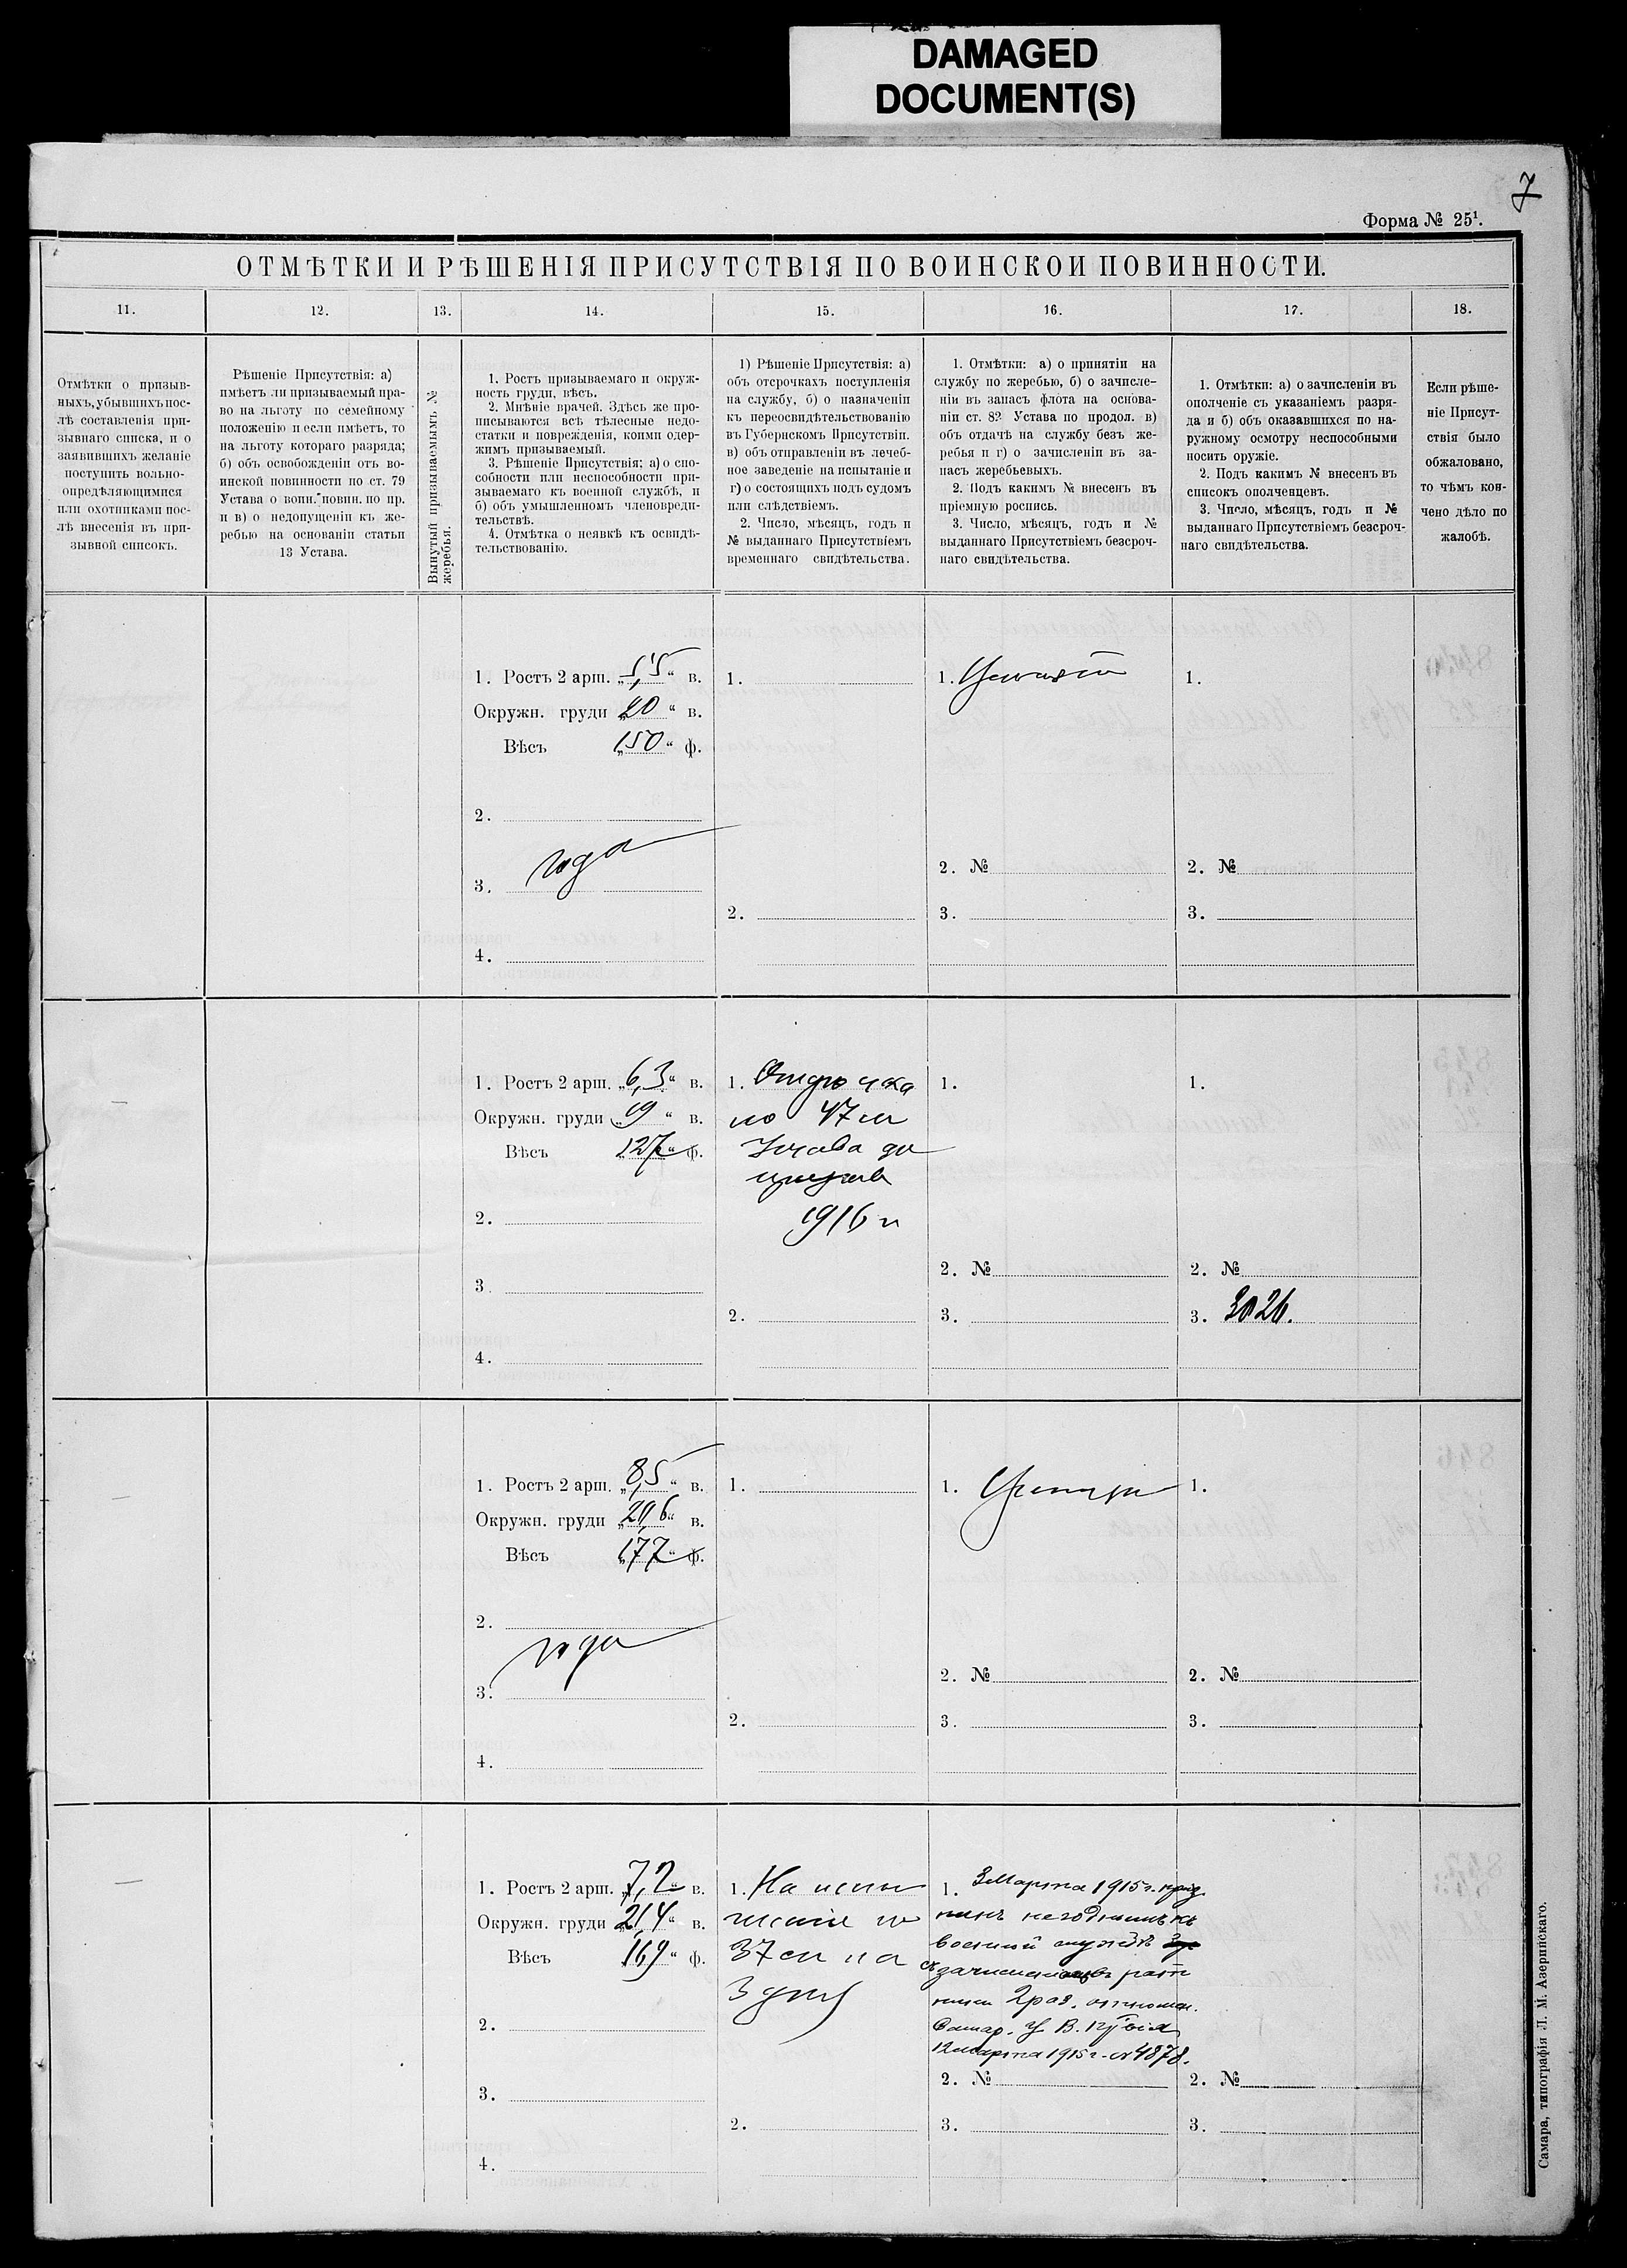 DAMAGED
DOCUMENT(S)
7
Форма № 25¹.
ОТМѢТКИ И РѢШЕНІЯ ПРИСУТСТВІЯ ПО ВОИНСКОЙ ПОВИННОСТИ.
11.
12.
13.
14.
15.
16.
17.
18.
Отмѣтки о призыв-
ныхъ, убывшихъ пос-
лѣ составленія при-
зывнаго списка, и о
заявившихъ желаніе
поступить вольно-
опредѣляющимися
или охотниками пос-
лѣ внесенія въ при-
зывной списокъ.
Рѣшеніе Присутствія: а)
имѣетъ ли призываемый пра-
во на льготу по семейному
положенію и если имѣетъ, то
на льготу котораго разряда;
б) объ освобожденіи отъ во-
инской повинности по ст. 79
Устава о воин. повин. по пр.
и в) о недопущеніи къ же-
ребью на основаніи статьи
13 Устава.
Вынутый призываемымъ №
жеребья.
1. Ростъ призываемаго и окруж-
ность груди, вѣсъ.
2. Мнѣніе врачей. Здѣсь же про-
писываются всѣ тѣлесные недо-
статки и поврежденія, коими одер-
жимъ призываемый.
3. Рѣшеніе Присутствія; а) о спо-
собности или неспособности при-
зываемаго къ военной службѣ, и
б) объ умышленномъ членовреди-
тельствѣ.
4. Отмѣтка о неявкѣ къ освидѣ-
тельствованію.
1) Рѣшеніе Присутствія: а)
объ отсрочкахъ поступленія
на службу, б) о назначеніи
къ переосвидѣтельствованію
въ Губернскомъ Присутствіи.
в) объ отправленіи въ лечеб-
ное заведеніе на испытаніе и
г) о состоящихъ подъ судомъ
или слѣдствіемъ.
2. Число, мѣсяцъ, годъ и
№ выданнаго Присутствіемъ
временнаго свидѣтельства.
1. Отмѣтки: а) о принятіи на
службу по жеребью, б) о зачисле-
ніи въ запасъ флота на основа-
ніи ст. 82 Устава по продол. в)
объ отдачѣ на службу безъ же-
ребья и г) о зачисленіи въ за-
пасъ жеребьевыхъ.
2. Подъ какимъ № внесенъ въ
пріемную роспись.
3. Число, мѣсяцъ, годъ и №
выданнаго Присутствіемъ безсроч-
наго свидѣтельства.
1. Отмѣтки: а) о зачисленіи въ
ополченіе съ указаніемъ разря-
да и б) объ оказавшихся по на-
ружному осмотру неспособными
носить оружіе.
2. Подъ какимъ № внесенъ въ
списокъ ополченцевъ.
3. Число, мѣсяцъ, годъ и №
выданнаго Присутствіемъ безсроч-
наго свидѣтельства.
Если рѣше-
ніе Присут-
ствія было
обжаловано,
то чѣмъ кон-
чено дѣло по
жалобѣ.
1. Ростъ 2 арш. „5,5“ в.
Окружн. груди „20“ в.
Вѣсъ „150“ ф.
2.
3. годн
4.
1.
2.
1. Принятъ
2. №
3.
1.
2. №
3.
1. Ростъ 2 арш. „6,3“ в.
Окружн. груди „19“ в.
Вѣсъ „127“ ф.
2.
3.
4.
1. Отсрочка
по 47 ст
Устава до
призыва
1916 г
2.
1.
2. №
3.
1.
2. №
3. 3026.
1. Ростъ 2 арш. „8,5“ в.
Окружн. груди „20,6“ в.
Вѣсъ „177“ ф.
2.
3. годн
4.
1.
2.
1. Принятъ
2. №
3.
1.
2. №
3.
1. Ростъ 2 арш. „7,2“ в.
Окружн. груди „21,4“ в.
Вѣсъ „169“ ф.
2.
3.
4.
1. На испы
таніе по
37 ст на
3 дня
2.
1. 3 Марта 1915 г. приз
нанъ негоднымъ къ
военной службѣ
съ зачисленіемъ рат
ники 2 раз. отношен.
Самар. У. В.
12 Марта 1915 г. № 4878.
2. №
3.
2. №
3.
Самара, типографія Л. М. Азеринскаго.